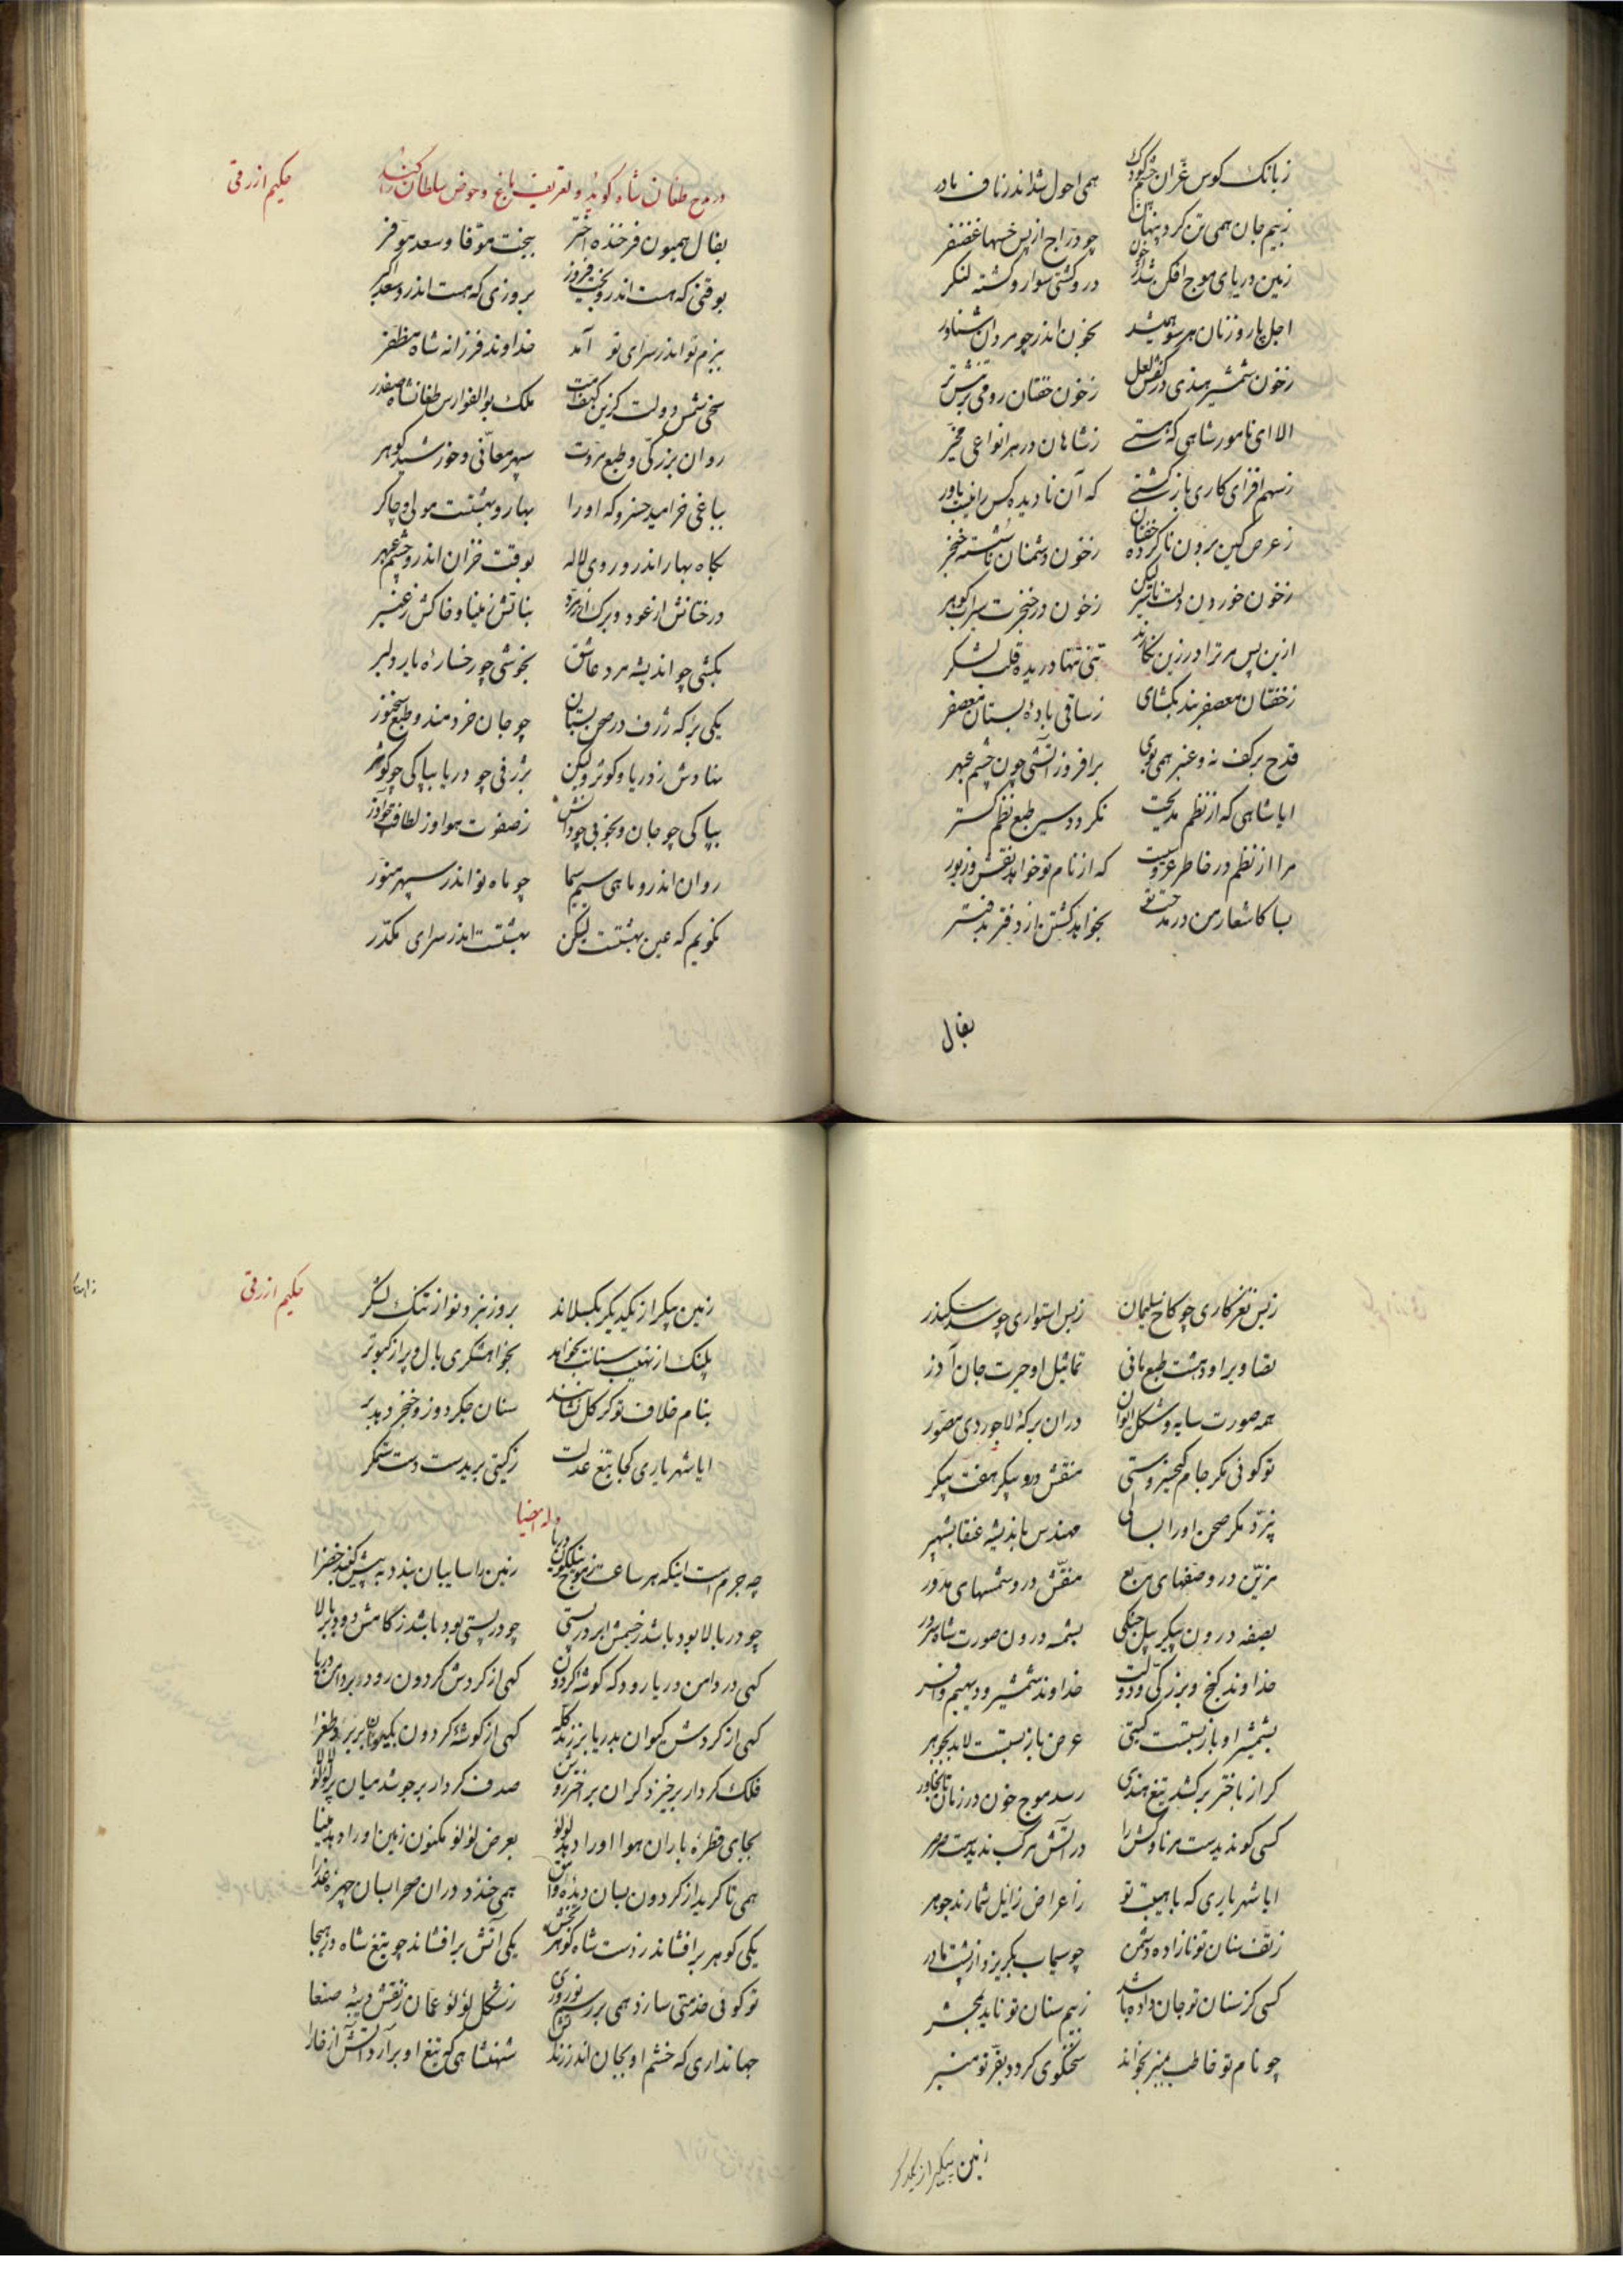 زبانک کوس غران چشم کودک همی احول شد اندر ناف مادر
زبیم جان همی تن کرد پنهان چو دراج از پس خسها غضنفر
زمین دریای موج افکن شد از خون درو کشتی سوار و کشته لنکر
اجل پا روزنان هر سو همیشد بخون اندر چو مردان شناور
زخون شمشیر هندی در کفش لعل زخون خفتان رومی بر تنش تر
الا ای نامور شاهی که هستی زشاهان در هر انواعی مخیر
زسهم افزای کاری باز کشتی که آن نادیده کس را نیست باور
زعرض کین برون ناکرده خفتان زخون دشمنان ناشسته خنجر
زخون خوردن دلت ناسیر لیکن زخون در خنجرت سیراب کوهر
ازین پس مر ترا در زین نکارند تنی تنها دریده قلب لشکر
زخفتان معصفر بند بکشای زساقی بادهٔ بستان معصفر
قدح بر کف نه و عنبر همی بوی برافروز آتشی چون چشم عبهر
ایا شاهی که از نظم مدیحت نکردد سیر طبع نظم کستر
مرا از نظم در خاطر عروسیست که از نام تو خواهد نقش و زیور
بسا کاشعار من در مدحت تو بخواهد کشتن از دفتر بدفتر
بفال
حکیم ازرقی
در مدح طغان شاه کوید و تعریف باغ و حوض سلطان را کند
بفال همیون فرخنده اختر ببخت موفا و سعد موفر
بوقتی که هست اندرو بخت فیروز بروزی که هست اندرو سعد اکبر
ببزم نو اندر سرای نو آمد خداوند فرزانه شاه مظفر
سخی شمس دولت کزین کهف امت ملک بوالفوارس طغانشاه صفدر
روان بزرکی و طبع مروت سپهر معانی و خورشید کوهر
بباغی خرامید خسرو که او را بهار و بهشتست مولی و چاکر
بکاه بهار اندرو روی لاله بوقت خزان اندرو چشم عبهر
درختانش از عود و برک از زمرد نباتش زمینا و خاکش زعنبر
بکشی چو اندیشه مرد عاشق بخوشی چو رخسارهٔ یار دلبر
یکی برکه ژرف در صحن بستان چو جان خردمند و طبع سخنور
نهادش زدریا و کوثر ولیکن بژرفی چو دریا بپاکی چو کوثر
بپاکی چو جان و بخوبی چو دانش زصفوت هوا وز لطافت چو آذر
روان اندرو ماهی سیم سیما چو ماه نو اندر سپهر منور
نکویم که عین بهشتست لیکن بهشتست اندر سرای مکدر
زبس نغز کاری چو کاخ سلیمان زبس استواری چو سد سکندر
تصاویر او دهشت طبع مانی تماثیل او حیرت جان آذر
همه صورت سایه و شکل ایوان دران برکهٔ لاجوردی مصور
تو کوئی مکر جام کیخسروستی منقش درو پیکر هفت پیکر
نپرد مکر صحن او را بسالی مهندس باندیشه عنقا بشهپر
مزین درو صفهای مربع منقش درو شمسهای مدور
بصفه درون پیکر پیل جنکی بشمسه درون صورت شاه سرور
خداوند کنج و بزرکی و دولت خداوند شمشیر و دیهیم و افسر
بشمشیر او باز بستست کیتی عرض باز بستست لابد بجوهر
کر از باختر برکشد تیغ هندی رسد موج خون در زمان تا بخاور
کسی کو ندیدست مر ناوکش را در آتش مرکب ندیدست صرصر
ایا شهریاری که با هیبت تو زاعراض زایل شمارند جوهر
زتف سنان تو نازاده دشمن چو سیماب بکریزد از پشت مادر
کسی کز سنان تو جان داده باشد زبیم سنان تو ناید بمحشر
چو نام تو خاطب بمنبر بخواند سخنکوی کردد بفر تو منبر
زمین پیکر از یکدکر
حکیم ازرقی
زمین پیکر از یکدیکر بکسلاند بروز نبرد تو از تنک لشکر
پلنک از نهیب سنانت بخواهد بخواهشکری بال و پر از کبوتر
بنام خلاف تو کر کل نشانند سنان جکردوز و خنجر دهد بر
ایا شهریاری کجا تیغ عدلت زکیتی بریدست دست ستمکر
وله ایضا
چه جرم است اینکه هر ساعت زموج نیلکون دریا زمین را سایبان بندد به پیش کنبد خضرا
چو در بالا بود باشد زخیمش ابر در پستی چو در پستی بود باشد زکامش دود بر بالا
کهی در دامن دریا رود که کوشهٔ کردون کهی از کردش کردون رود بر دامن دریا
کهی از کردش کیوان بدریا برزند کله کهی از کوشهٔ کردون بکیوان بر برد طغرا
فلک کردار برخیزد کران بر اختر روشن صدف کردار برجوشد میان پر لؤلؤ لالا
بجای قطرهٔ باران هوا او را دهد لؤلؤ بعرض لؤلؤ مکنون زمین او را دهد مینا
همی تا کرید از کردون بسان دیدهٔ وامق همی خندد دران صحرا بسان چهرهٔ عذرا
یکی کوهر برافشاند زدست شاه کوهربخش یکی آتش برافشاند چو تیغ شاه در هیجا
تو کوئی خدمتی سازد همی بر رسم نوروزی زشکل لؤلؤ عمان زنقش دیبه صنعا
جهانداری که خشم او بجان اندر زند آتش شهنشاهی که تیغ او برآرد آتش از خارا